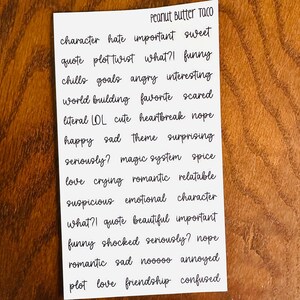 Peanut Butter Taco
character hate important sweet
quote plot twist what?! funny
chills goals angry interesting
world building favorite scared
literal LOL cute heartbreak nope
happy sad theme surprising
seriously? magic system spice
love crying romantic relatable
suspicious emotional character
what?! quote beautiful important
funny shocked seriously? nope
romantic sad nooooo annoyed
plot love friendship confused